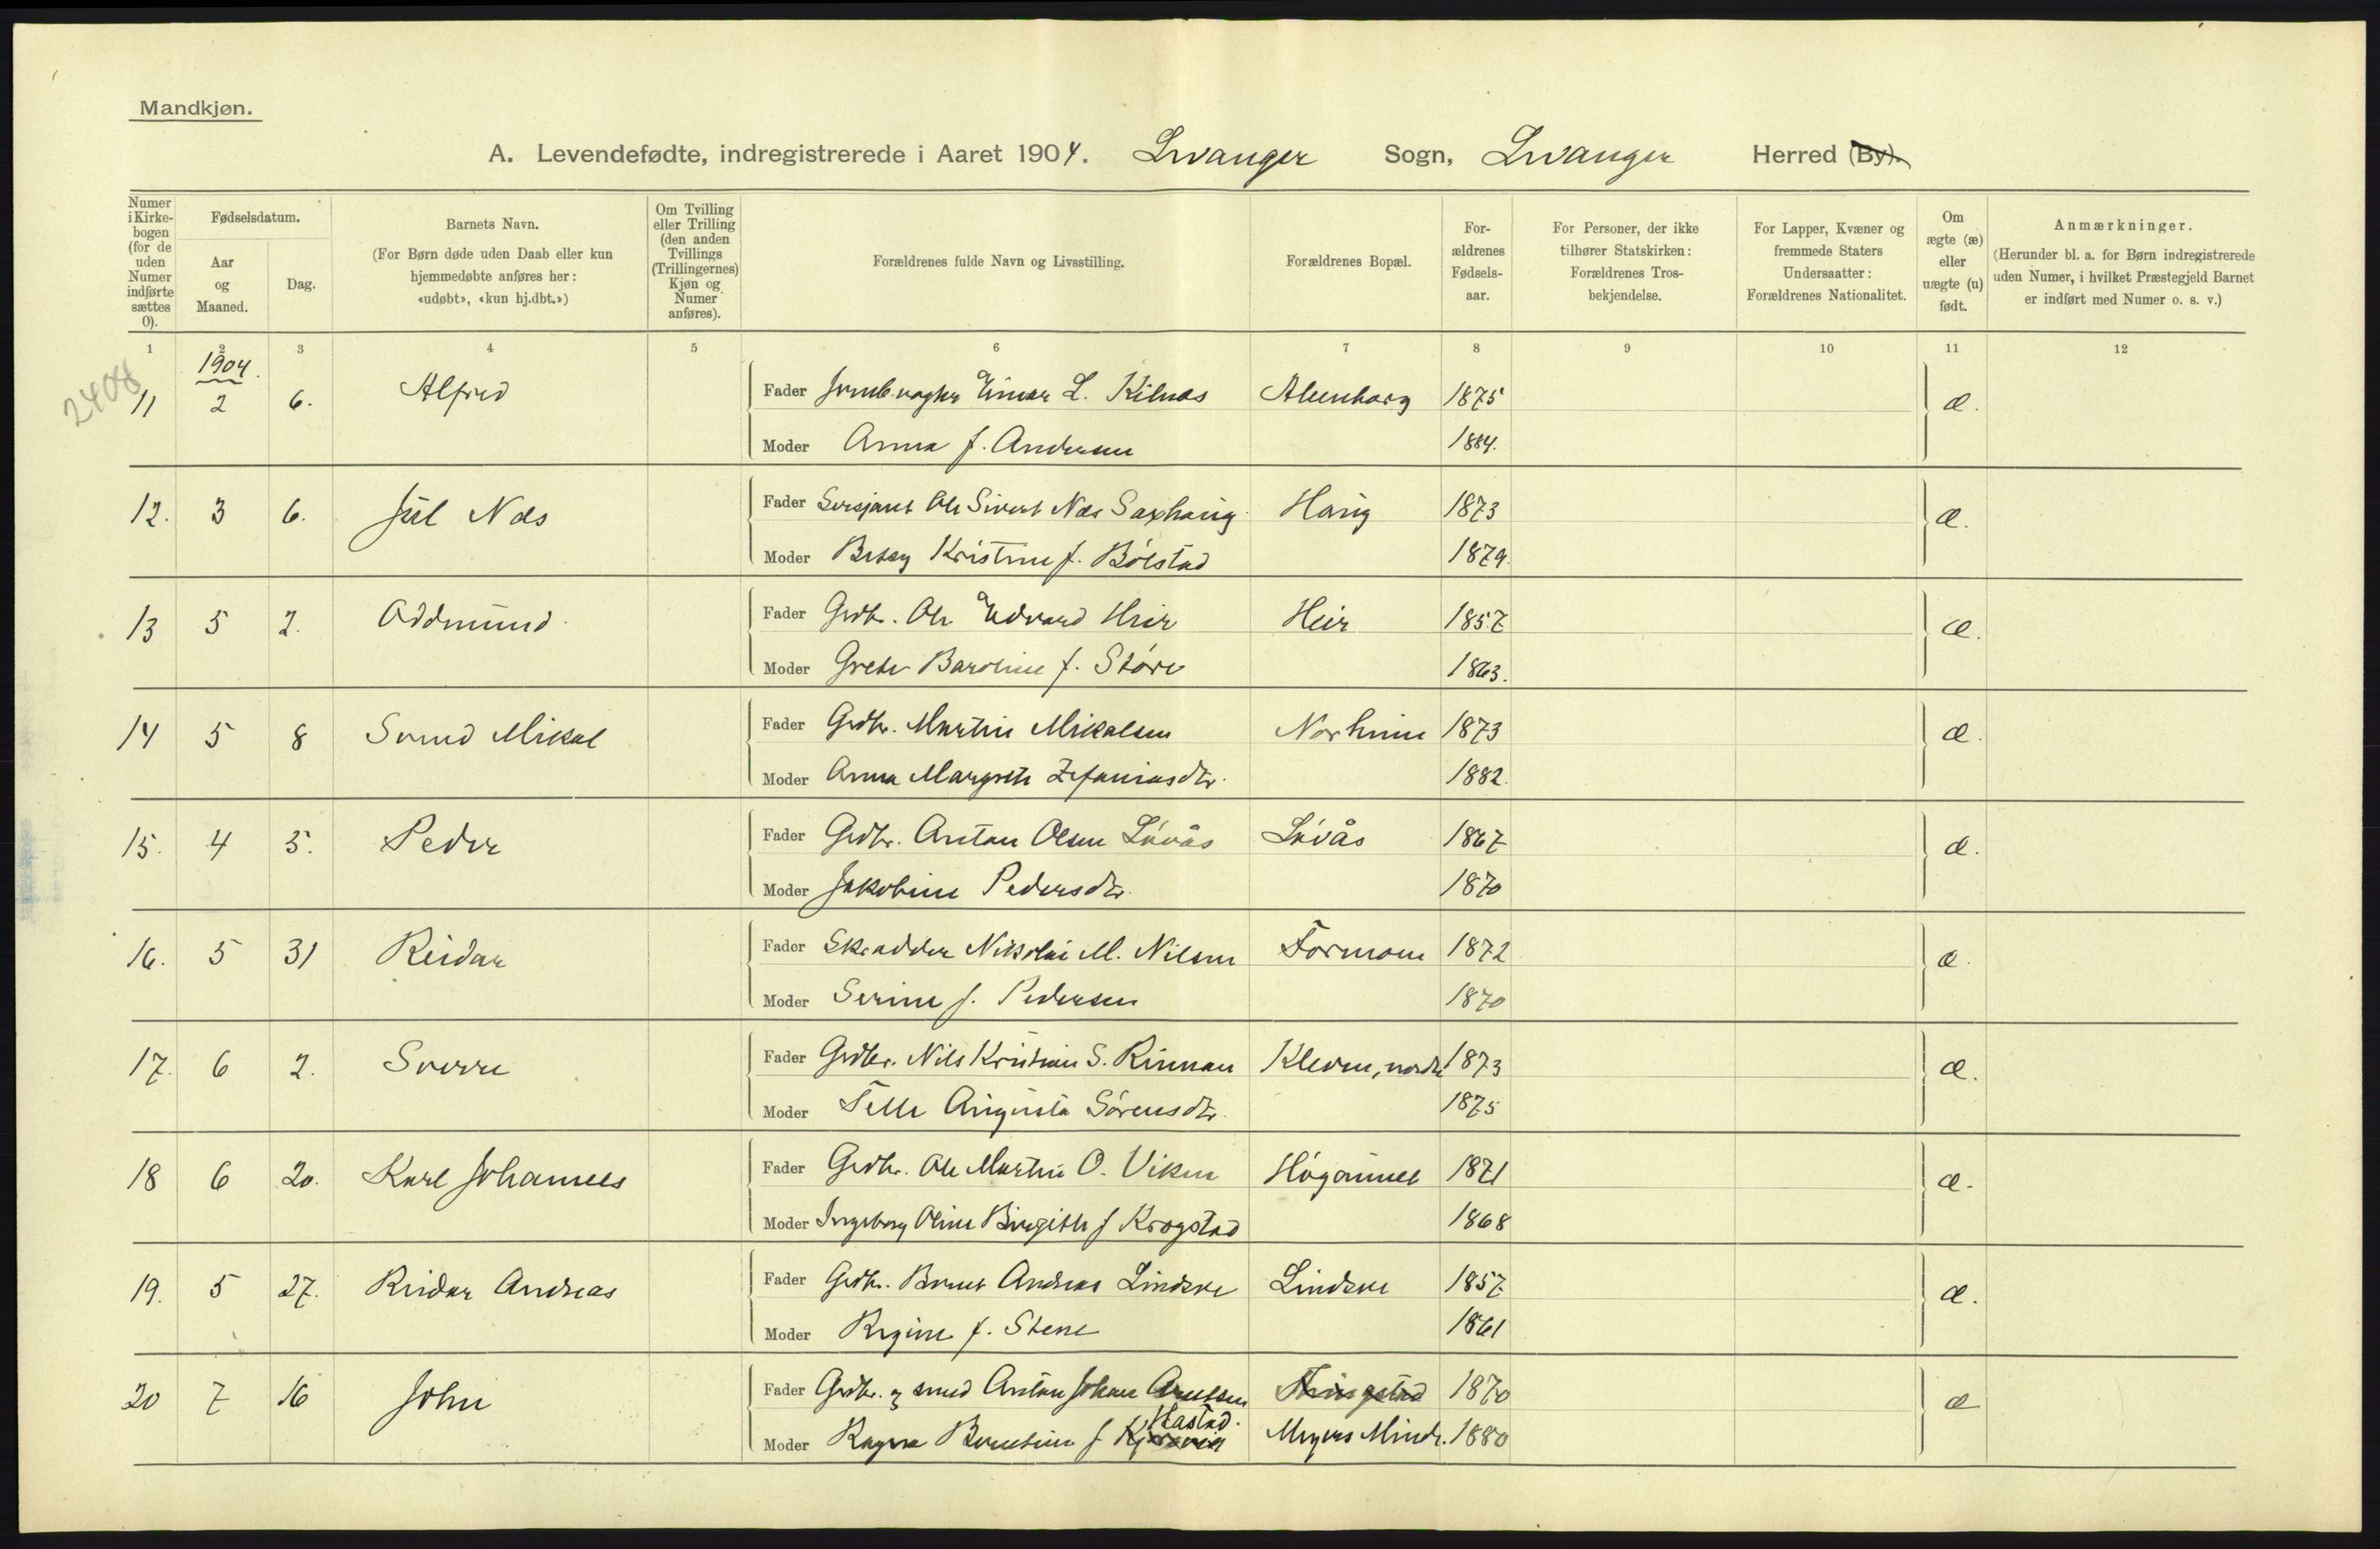 Mandkjøn.
A. Levendefødte, indregistrerede i Aaret 1904. Levanger Sogn, Levanger Herred (By).
Numer i Kirkebogen (for de uden Numer indførte sættes 0).
Fødselsdatum.
Aar og Maaned.
Dag.
Barnets Navn.
(For Børn døde uden Daab eller kun hjemmedøbte anføres her: «udøbt», «kun hj.dbt.»)
Om Tvilling eller Trilling (den anden Tvillings (Trillingernes) Kjøn og Numer anføres).
Forældrenes fulde Navn og Livsstilling.
Forældrenes Bopæl.
Forældrenes Fødselsaar.
For Personer, der ikke tilhører Statskirken: Forældrenes Trosbekjendelse.
For Lapper, Kvæner og fremmede Staters Undersaatter: Forældrenes Nationalitet.
Om ægte (æ) eller uægte (u) født.
Anmærkninger.
(Herunder bl. a. for Børn indregistrerede uden Numer, i hvilket Præstegjeld Barnet er indført med Numer o. s. v.)
1 2 3 4 5 6 7 8 9 10 11 12
2408
1904.
11 2 6. Alfred Fader Jernb.vogter Einar L. Kilnæs Alenborg 1875 æ.
Moder Anna f. Andersen 1884.
12. 3 6. Jul Næs Fader Sersjant Ole Sivert Næs Saxhaug Haug 1873 æ.
Moder Betsy Kristine f. Bólstad 1879.
13 5 2. Oddmund Fader Grdbr. Ole Edvard Heir Heir 1857 æ.
Moder Grete Baroline f. Störe 1863.
14 5 8 Svend Mikal Fader Grdbr. Martin Mikalsen Norheim 1873 æ.
Moder Anna Margrete Zefaniasdtr. 1882.
15. 4 5. Peder Fader Grdbr. Anton Olsen Lóvås Lóvås 1867 æ.
Moder Jakobine Pedersdtr. 1870
16. 5 31 Reidar Fader Skrædder Nikolai M. Nilsen Formoen 1872 æ.
Moder Serine f. Pedersen 1870
17. 6 2. Sverre Fader Grdbr. Nils Kristian S. Rinnan Kleven, nordre 1873 æ.
Moder Augusta Sörensdtr. 1875
18 6 20. Karl Johannes Fader Grdbr. Ole Martin O. Viken 1871 æ.
Moder Ingeborg Oline Birgitte f Krogstad 1868
19. 5 27. Reidar Andreas Fader Grdbr. Bernt Andreas Lindsve Lindsve 1857 æ.
Moder Regine f. Stene 1861
20 7 16 John Fader Grdbr. og smed Anton Johan Arntsen Thingstad 1870 æ
Hastad.
Moder Ragna Berntine f Meyers Minde. 1880